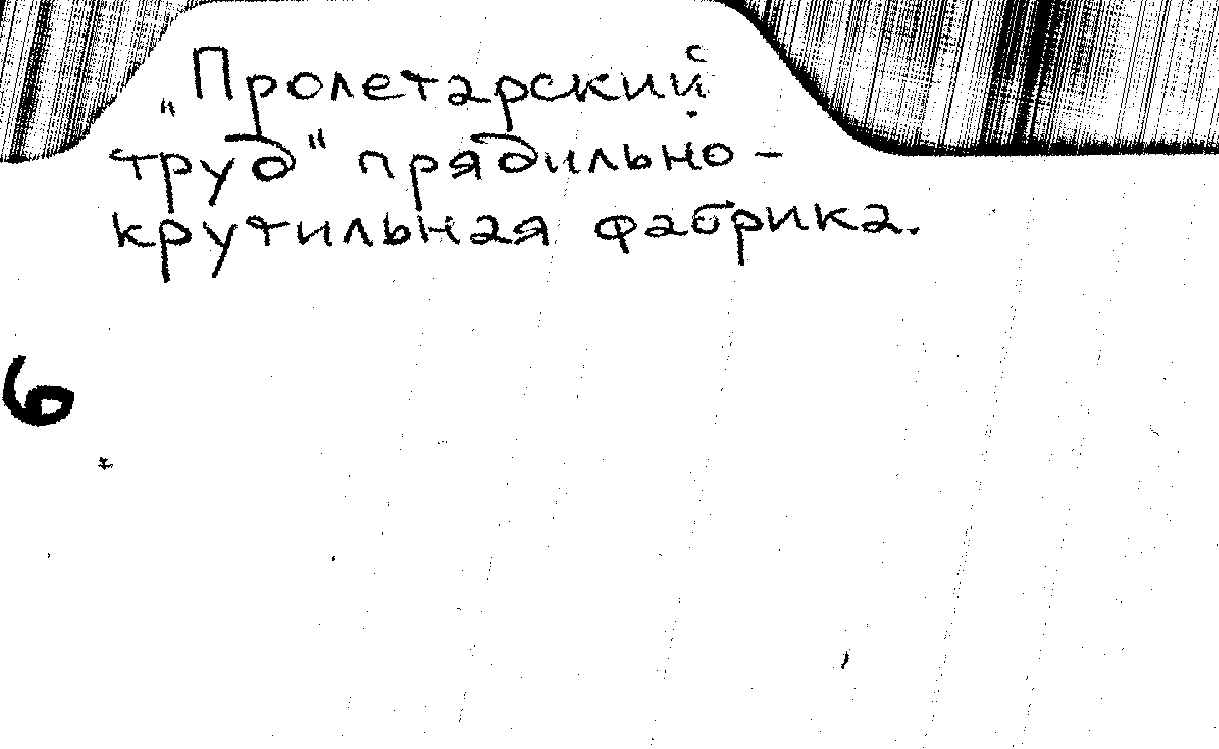 "Пролетарский
труд" прядильно-
крутильная фабрика.
6